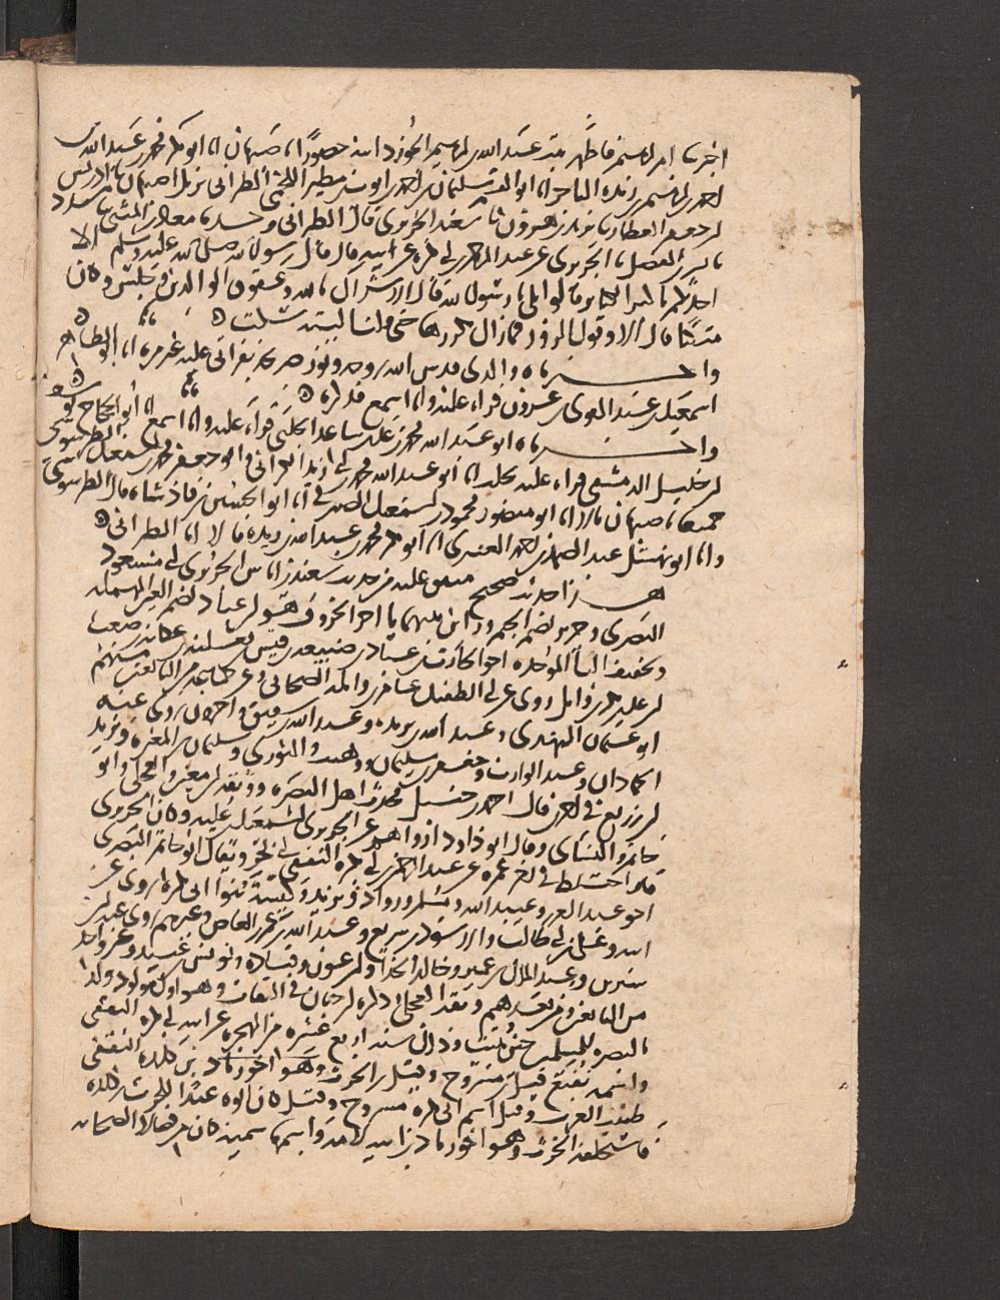 اخبرتنا ام ابراهيم فاطمة بنت عبد الله الجوزدانية حضورا باصبهان انا ابو بكر محمد بن عبد الله
احمد بن ابراهيم بن ريذه التاجر انا ابو القاسم سليمان بن احمد بن ايوب بن مطير اللخمي الطبراني نزيل اصبهان نا ادريس
بن جعفر العطار نا يزيد بن هرون نا سعيد الجريري قال الطبراني وحدثنا معاذ بن المثنى نا مسدد
نا بشر بن المفضل نا الجريري عن عبد الرحمن بن ابي بكره عن ابيه قال قال رسول الله صلى الله عليه وسلم الا
احدثكم باكبر الكباير قالوا بلى يا رسول الله قال الاشراك بالله وعقوق الوالدين وجلس وكان
متكئا قال الا وقول الزور فما زال يكررها حتى قلنا ليته سكت
واخبرناه والدي قدس الله روحه ونور ضريحه بقراتي عليه غير مره انا ابو الطاهر
اسمعيل بن عبد القوي بن عزون قراة عليه وانا اسمع قدكره
واخبرناه ابو عبد الله محمد بن علي بن ساعد الحلبي قراة عليه وانا اسمع انا ابو الحجاج يوسف
بن خليل الدمشقي قراة عليه بحلب انا ابو عبد الله محمد بن ابي زيد الكراني وابو جعفر محمد بن اسمعيل الطرسوسي
جميعا باصبهان قالا انا ابو منصور محمود بن اسمعيل الصيرفي انا ابو الحسين بن فاذشاه قال الطرسوسي
وانا ابو نهشل عبد الصمد بن احمد العنبري انا ابو بكر محمد بن عبد الله بن ريذه قالا انا الطبراني
هذا حديث صحيح متفق عليه من حديث سعيد بن اياس الجريري ابي مسعود
البصري وجرير بضم الجيم وراين بينهما يا اخر الحروف هو ابن عباد بضم العين المهملة
وتخفيف البا الموحدة اخو الحارث بن عباد بن ضبيعة بن قيس بن ثعلبة بن عكابة بن صعب
بن علي بن بكر بن وايل روى عن ابي الطفيل عامر بن واثلة الصحابي وعن جماعة من التابعين منهم
ابو عثمان النهدي وعبد الله بن بريده وعبد الله بن شقيق واخرون روى عنه
الحمادان وعبد الوارث وجعفر بن سليمان ووهيب والثوري وسليمان بن المغيره ويزيد
بن زريع في اخرين قال احمد بن حنبل محدث اهل البصره ووثقه ابن معين والعجلي وابو
حاتم والنساي وقال ابو داود ارواهم عن الجريري اسمعيل بن عليه وكان الجريري
قد اختلط في اخر عمره عن عبد الرحمن بن ابي بكره الثقفي ابي بحر ويقال ابو حاتم البصري
اخو عبد العزيز وعبيد الله ومسلم ورواد ويزيد وكيسة بنوا ابي بكره روى عن
ابيه وعلي بن ابي طالب والاسود بن سريع وعبد الله بن عمرو بن العاص وغيرهم روى عنه ابن
سيرين وعبد الملك بن عمير وخالد الحذا وابن عون وقتاده ويونس بن عبيد وغير واحد
من التابعين ومن بعدهم وثقه العجلي وذكره ابن حبان في الثقات وهو اول مولود ولد
بالبصره للمسلمين حين بنيت وذلك سنة اربع عشره من الهجره عن ابيه ابي بكره الثقفي
واسمه نفيع قيل بن مسروح وقيل بن الحرث وهو اخو زياد بن كلده الثقفي
طبيب العرب وقيل اسم ابي بكره مسروح وقيل كان ابوه عبدا للحرث بن كلده
فاستلحقه الحرث وهو اخو زياد بن ابيه لامه واسمها سمية كان من فضلا الصحابة